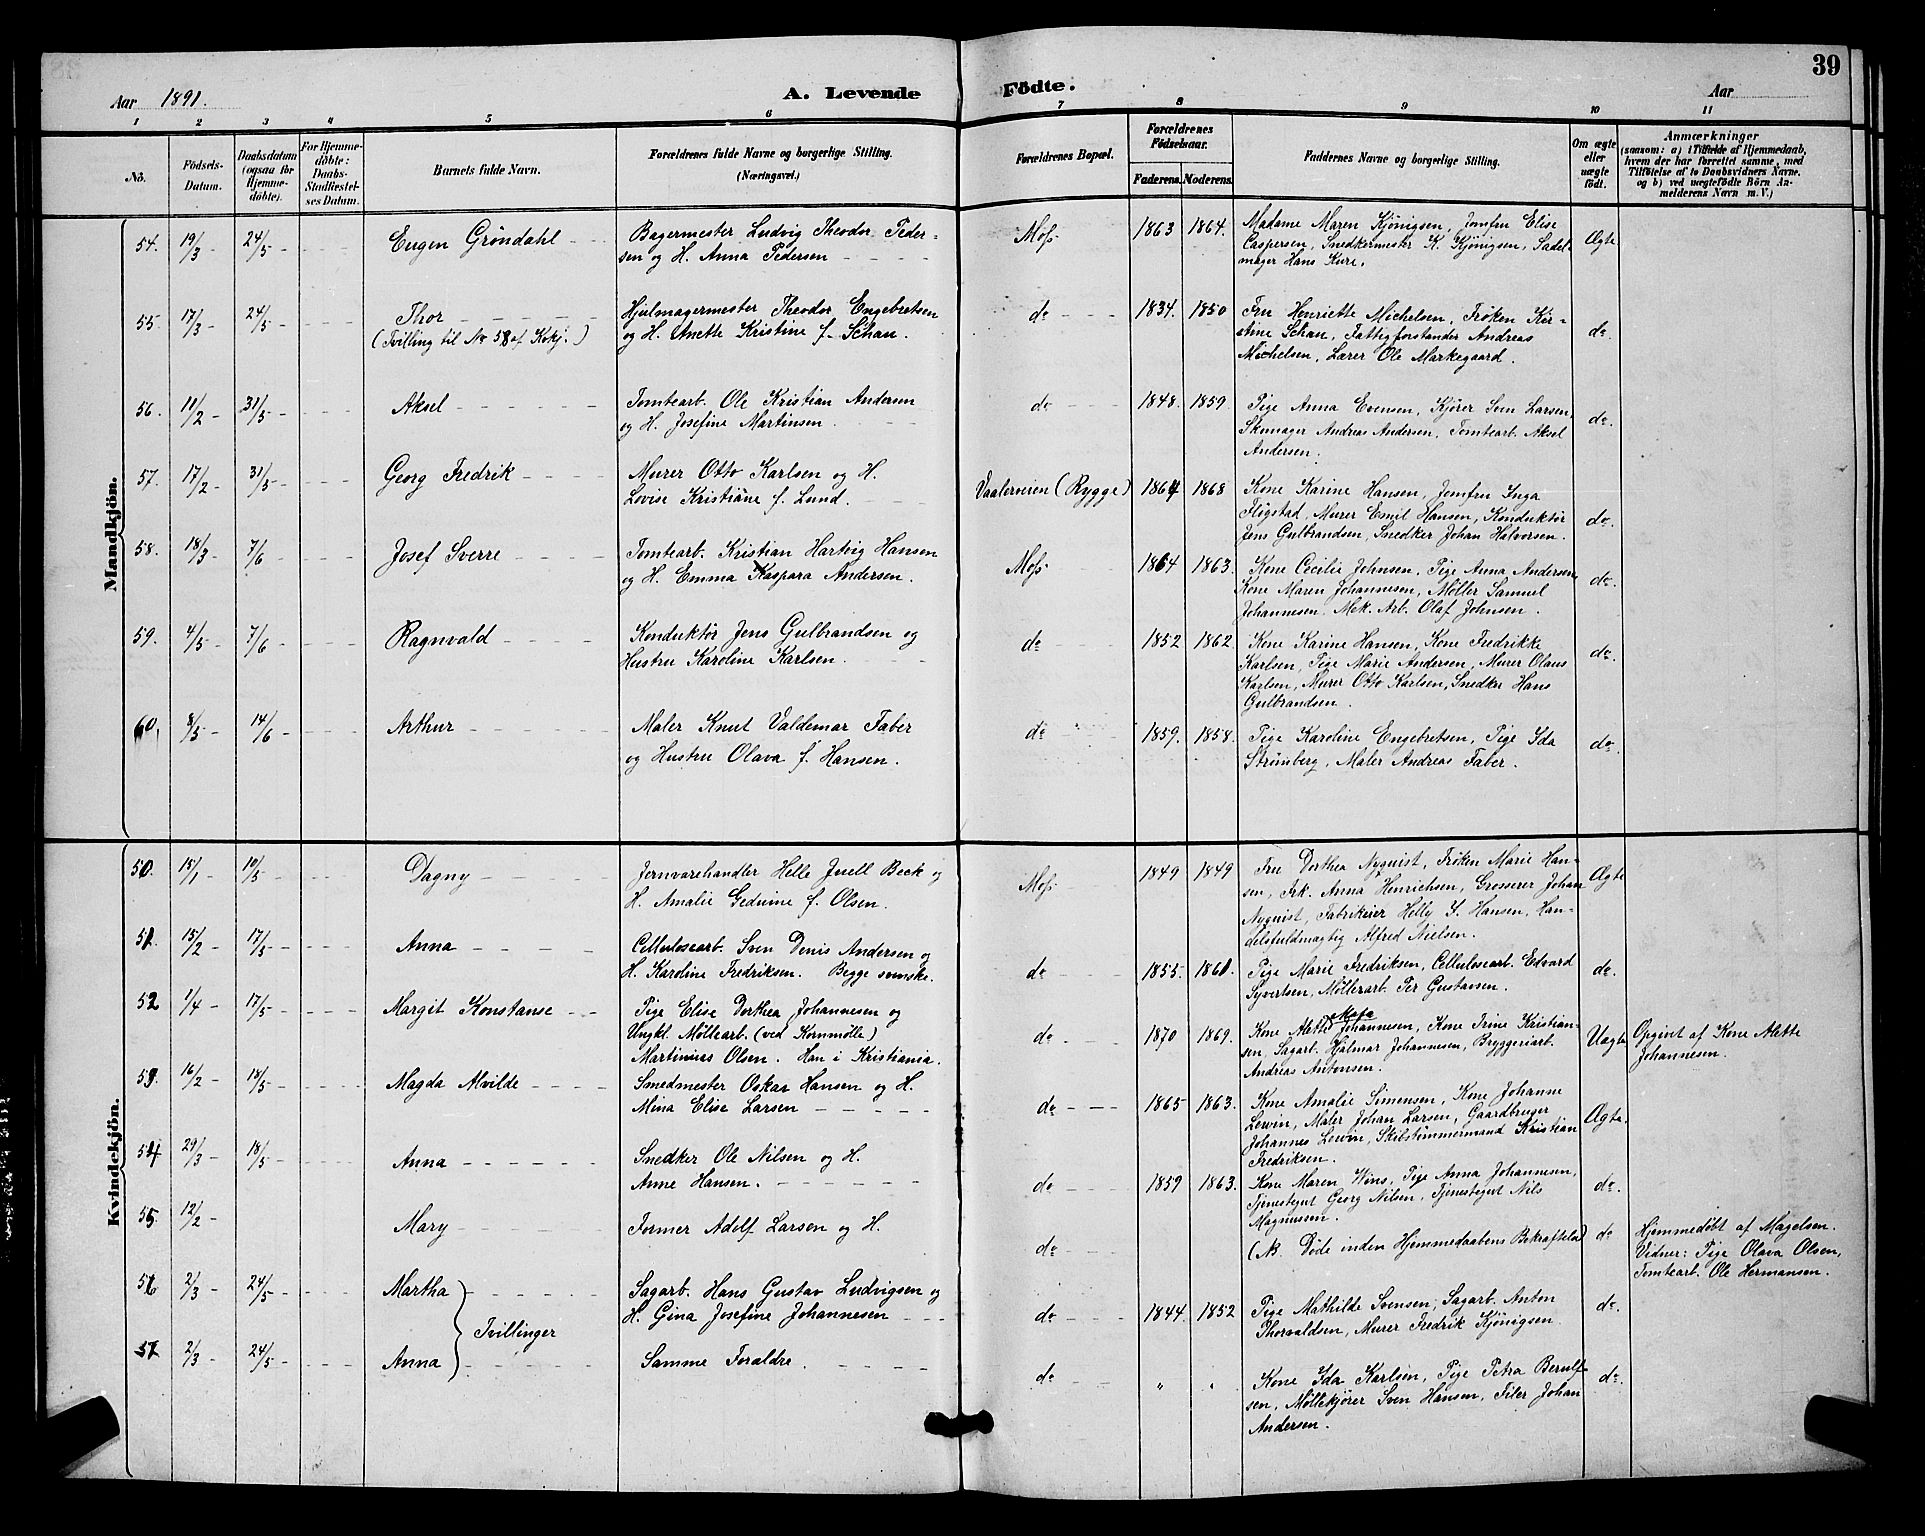 39
Aar 1891.
A. Levende Födte.
Aar
1 2 3 4 5 6 7 8 9 10 11
No.
Födsels-Datum.
Daabsdatum (ogsaa for Hjemmedöbte).
For Hjemmedöbte: Daabs-Stadfæstelses Datum.
Barnets fulde Navn.
Forældrenes fulde Navne og borgerlige Stilling.
(Næringsvei.)
Forældrenes Bopæl.
Forældrenes Födselsaar.
Faderens. Moderens.
Faddernes Navne og borgerlige Stilling.
Om ægte eller uægte födt.
Anmærkninger
(saasom: a) i Tilfælde af Hjemmedaab, hvem der har forrettet samme, med Tilföielse af to Daabsvidners Navne, og b) ved uægtefödte Börn Anmelderens Navn m. V.)
Mandkjön.
54. 19/3 24/5 Eugen Gröndahl Bagermester Ludvig Theodor Peder-
sen og H. Anna Pedersen
Moss 1863 1864. Madame Maren Kjönigsen, Jomfru Elise
Caspersen, Snedkermester K. Kjönigsen, Sadel-
mager Hans Kure. Ægte
55. 17/3 24/5 Thor
(Tvilling til No 58 af Kvkj.)
Hjulmagermester Theodor Engebretsen
og H. Anette Kristine f. Schau.
do 1834. 1850 Fru Henriette Michelsen, Frøken Kir-
stine Schau, Fattigforstander Andreas
Michelsen, Lærer Ole Markegaard. do.
56. 11/2 31/5 Aksel Tomtearb. Ole Kristian Andersen
og H. Josefine Martinsen.
do 1848. 1859. Pige Anna Evensen, Kjører Sven Larsen,
Skomager Andreas Andersen, Tomtearb. Aksel
Andersen. do.
57. 17/2 31/5 Georg Fredrik Murer Otto Karlsen og H.
Lovise Kristiane f. Lund.
Vaalerveien (Rygge) 1864 1868 Kone Karine Hansen, Jomfru Inga
Fløgstad, Murer Emil Hansen, Konduktør
Jens Gulbrandsen, Snedker Johan Halvorsen. do.
58. 18/3 7/6 Josef Sverre Tomtearb. Kristian Hartvig Hansen
og H. Emma Kaspara Andersen.
Moss 1864 1863. Kone Cecilie Johnsen, Pige Anna Andersen,
Kone Maren Johannesen, Møller Samuel
Johannesen, Mek. Arb. Olaf Johnsen. do.
59. 4/5 7/6 Ragnvald Konduktør Jens Gulbrandsen og
Hustru Karoline Karlsen.
do 1852 1862. Kone Karine Hansen, Kone Fredrikke
Karlsen, Pige Marie Andersen, Murer Olaus
Karlsen, Murer Otto Karlsen, Snedker Hans
Gulbrandsen. do.
60. 8/5 14/6 Arthur Maler Knut Valdemar Faber
og Hustru Olava f. Hansen.
do 1859. 1858. Pige Karoline Engebretsen, Pige Ida
Strømberg, Maler Andreas Faber. do.
Kvindekjön.
50. 15/1 10/5 Dagny Jernvarehandler Helle Juell Beck og
H. Amalie f. Olsen.
Moss 1849 1849 Fru Dorthea Nyquist, Frøken Marie Han-
sen, Frk. Anna Henrichsen, Grosserer Johan
Nyquist, Fabrikeier Helly J. Hansen, Han-
delsfuldmægtig Alfred Nielsen. Ægte
51. 15/2 17/5 Anna Cellulosearb. Sven Denis Andersen og
H. Karoline Fredriksen. Begge svenske.
do 1855. 1861. Pige Marie Fredriksen, Cellulosearb. Edvard
Syvertsen, Møllerarb. Per Gustavsen. do.
52 1/4 17/5 Margit Konstanse Pige Elise Dorthea Johannesen og
Ungkl. Møllearb. (ved Kornmølle)
Martinius Olsen. Han i Kristiania.
do 1870 1869. Kone Alette Johannesen, Kone Trine Kristian-
sen, Sagarb. Hjalmar Johannesen, Bryggeriarb.
Andreas Antonsen. Uægte Opgivet af Kone Alette
Johannesen.
53. 16/2 18/5 Magda Alvilde Smedmester Oskar Hansen og H.
Mina Elise Larsen
do 1865 1863. Kone Amalie Simensen, Kone Johanne
Lewin, Maler Johan Larsen, Gaardbruger
Johannes Lewin, Skibstømmermand Kristian
Fredriksen. Ægte.
54 29/3 18/5 Anna Snedker Ole Nilsen og H.
Anne Hansen.
do 1859 1863. Kone Maren Wins, Pige Anna Johannesen,
Tjenestegut Georg Nilsen, Tjenestegut Nils
Magnussen. do.
55. 12/2 Mary Former Adolf Larsen og H.
do (NB. Døde inden Hjemmedaabens Bekræftelse) do Hjemmedøbt af Magelsen.
Vidner: Pige Olava Olsen,
Tomtearb. Ole Hermansen.
56 2/3 24/5 Martha Sagarb. Hans Gustav Ludvigsen og
H. Gina Josefine Johannesen
Tvillinger
do 1844. 1852 Pige Mathilde Svensen, Sagarb. Anton
Thorvaldsen, Murer Fredrik Kjönigsen. do.
57 2/3 24/5 Anna Samme Forældre.
do " " Kone Ida Karlsen, Pige Petra Berulf-
sen, Møllekjører Sven Hansen, Filer Johan
Andersen. do.